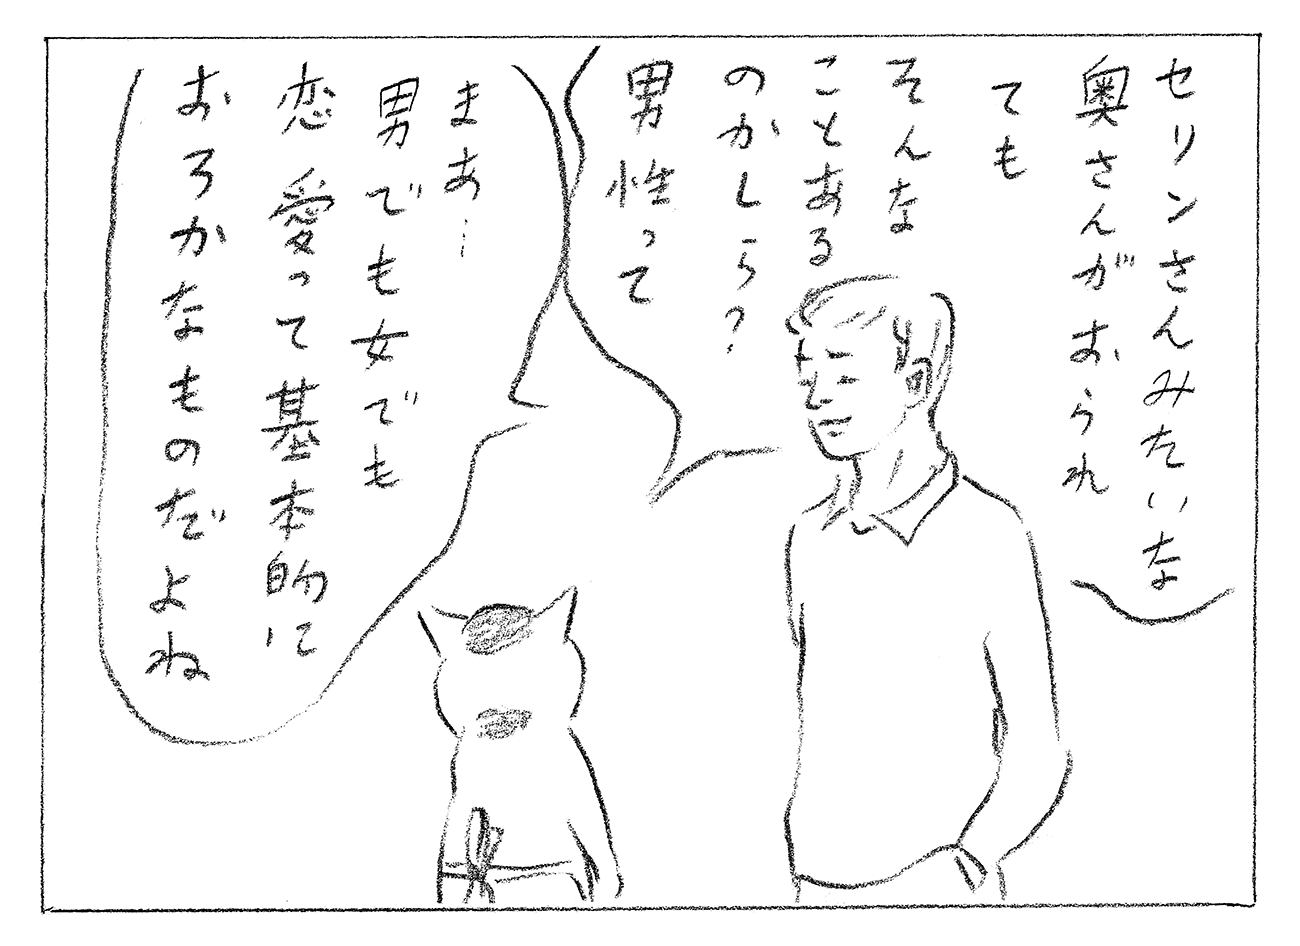 セリンさんみたいな
奥さんがおられ
ても
そんな
ことある
のかしら?
男性って
まあ…
男でも女でも
恋愛って基本的に
おろかなものだよね